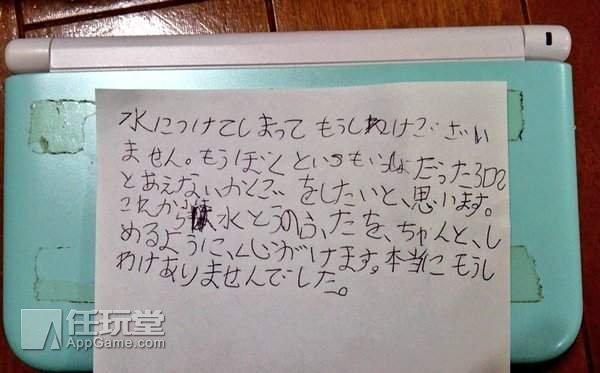 水につけてしまって もうしわけござい
ません。もうぼくといつもいっしょだった3DS
とあえないかくごをしたいと、思います。
これからは水とうのふたを、ちゃんと、し
めるように、心がけます。本当にもうし
わけありませんでした。
任玩堂
AppGame.com